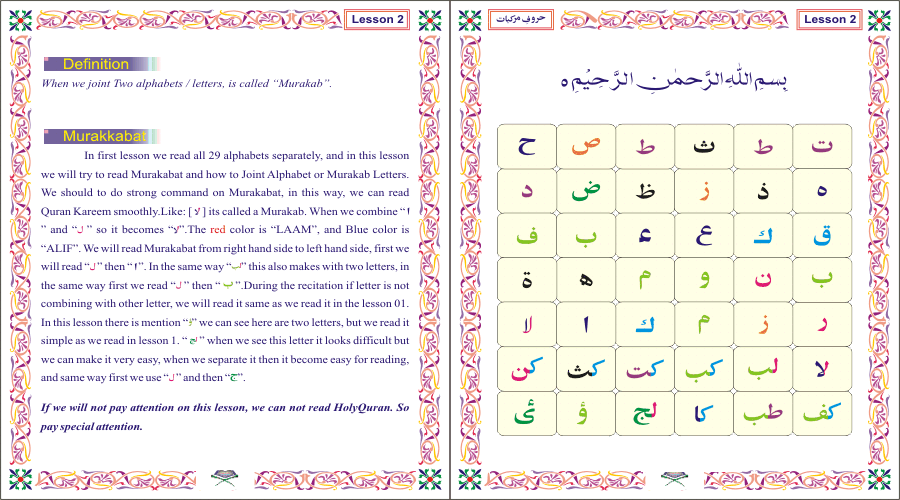 Lesson 2
Definition
When we joint Two alphabets / letters, is called “Murakab”.
Murakkabat
In first lesson we read all 29 alphabets separately, and in this lesson
we will try to read Murakabat and how to Joint Alphabet or Murakab Letters.
We should to do strong command on Murakabat, in this way, we can read
Quran Kareem smoothly.Like: [ لا ] its called a Murakab. When we combine “ا
” and “ل ” so it becomes “لا”.The red color is “LAAM”, and Blue color is
“ALIF”. We will read Murakabat from right hand side to left hand side, first we
will read “ل ” then “ا”. In the same way “لب” this also makes with two letters, in
the same way first we read “ل ” then “ ب ”.During the recitation if letter is not
combining with other letter, we will read it same as we read it in the lesson 01.
In this lesson there is mention “ؤ” we can see here are two letters, but we read it
simple as we read in lesson 1. “ لج ” when we see this letter it looks difficult but
we can make it very easy, when we separate it then it become easy for reading,
and same way first we use “ل ” and then “ج”.
If we will not pay attention on this lesson, we can not read HolyQuran. So
pay special attention.
حروفِ مرکبات
Lesson 2
بِسْمِ اللّٰهِ الرَّحْمٰنِ الرَّحِيْمِ ہ
ت ط ث ط ص ح
ہ ذ ز ظ ض د
ق ك ع ء ب ف
ب ن و م ھ ة
ر ز م ك ا لا
لا لب كب كت كث كن
كف طب كا لج ؤ ئ